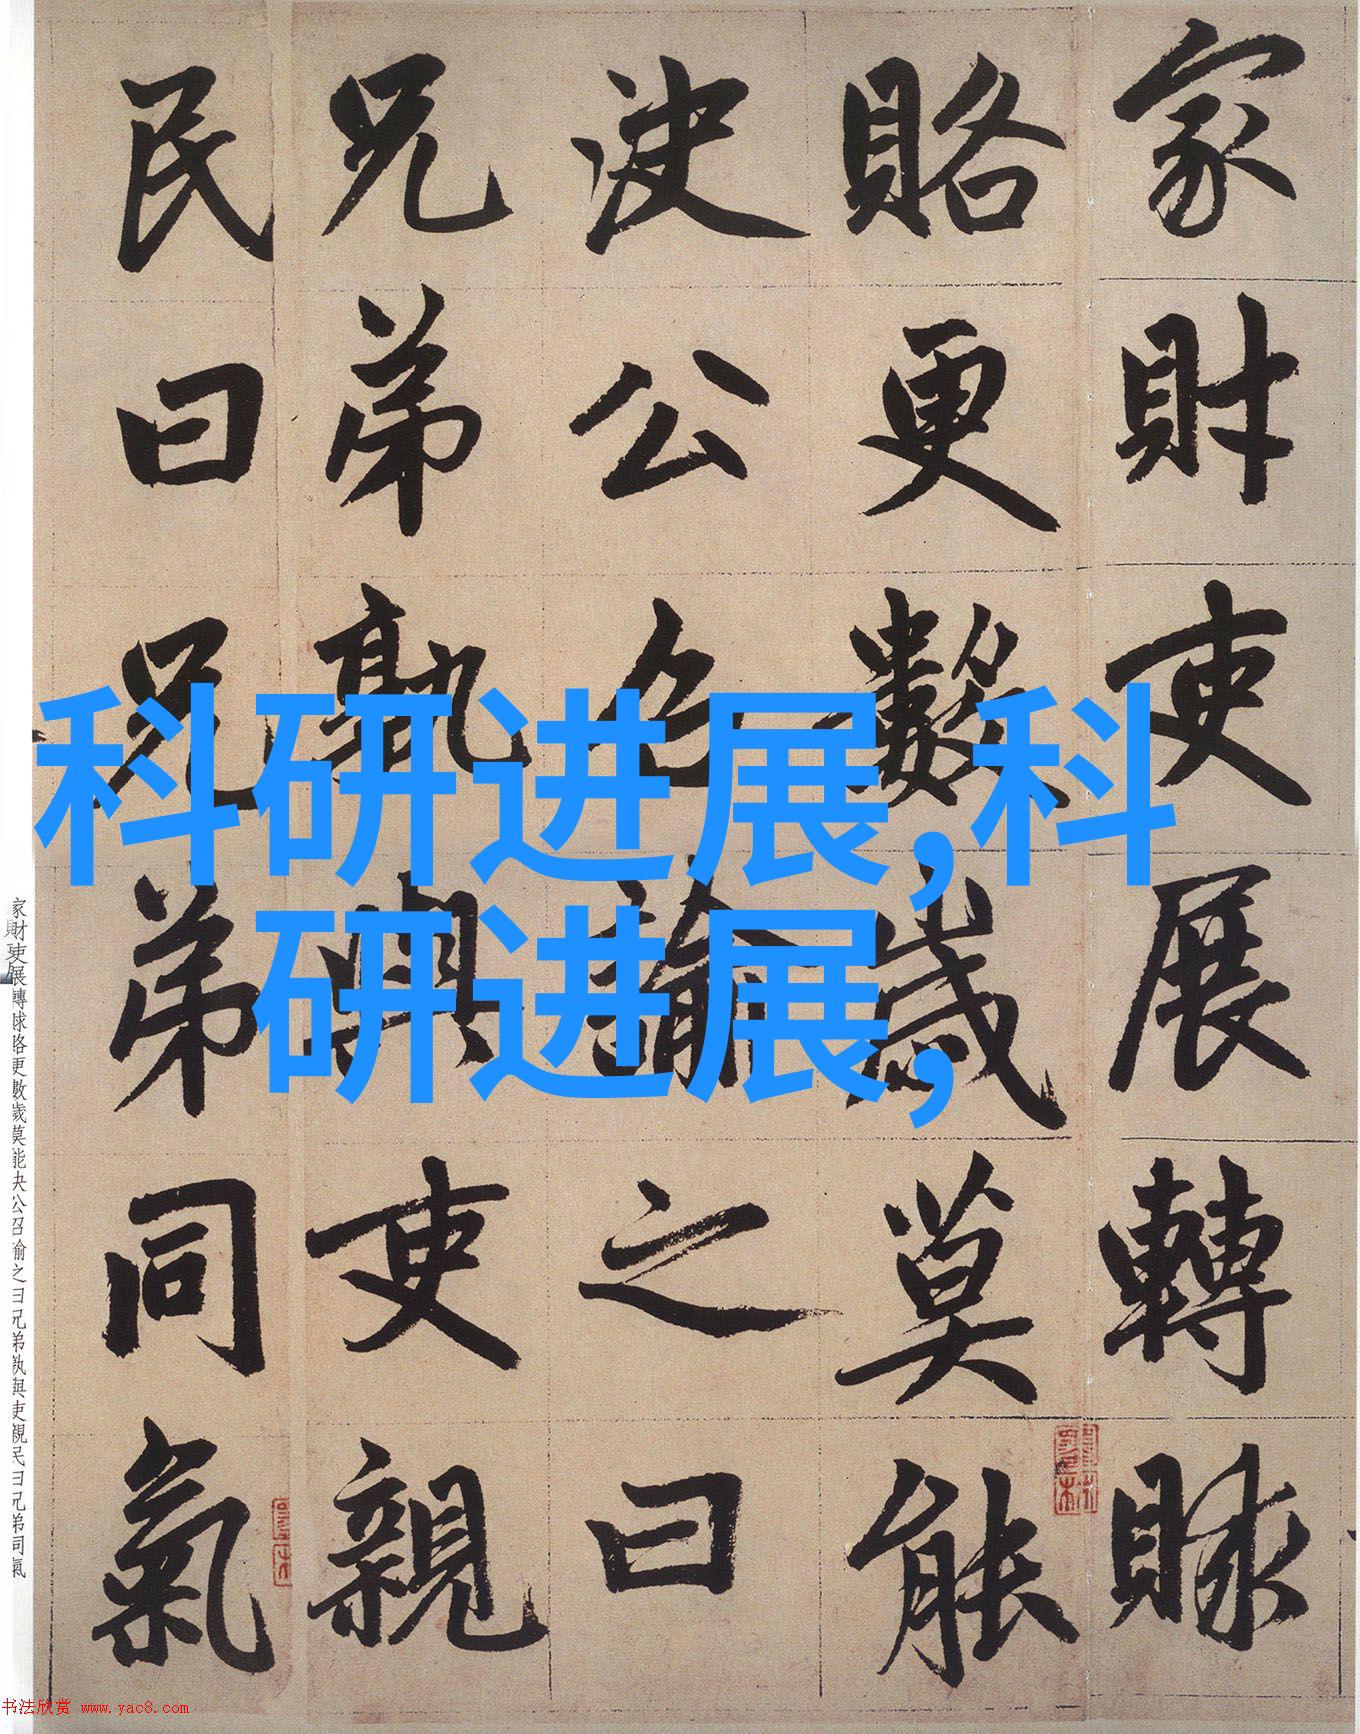 家財吏展轉賕
賂更數歲莫能
決公召諭之曰
兄弟孰與吏親
民曰兄弟同氣
科研进展,科
研进展,
家財吏展轉賕賂更數歲莫能決公召諭之曰兄弟孰與吏親民曰兄弟同氣
书法欣赏 www.yac8.com